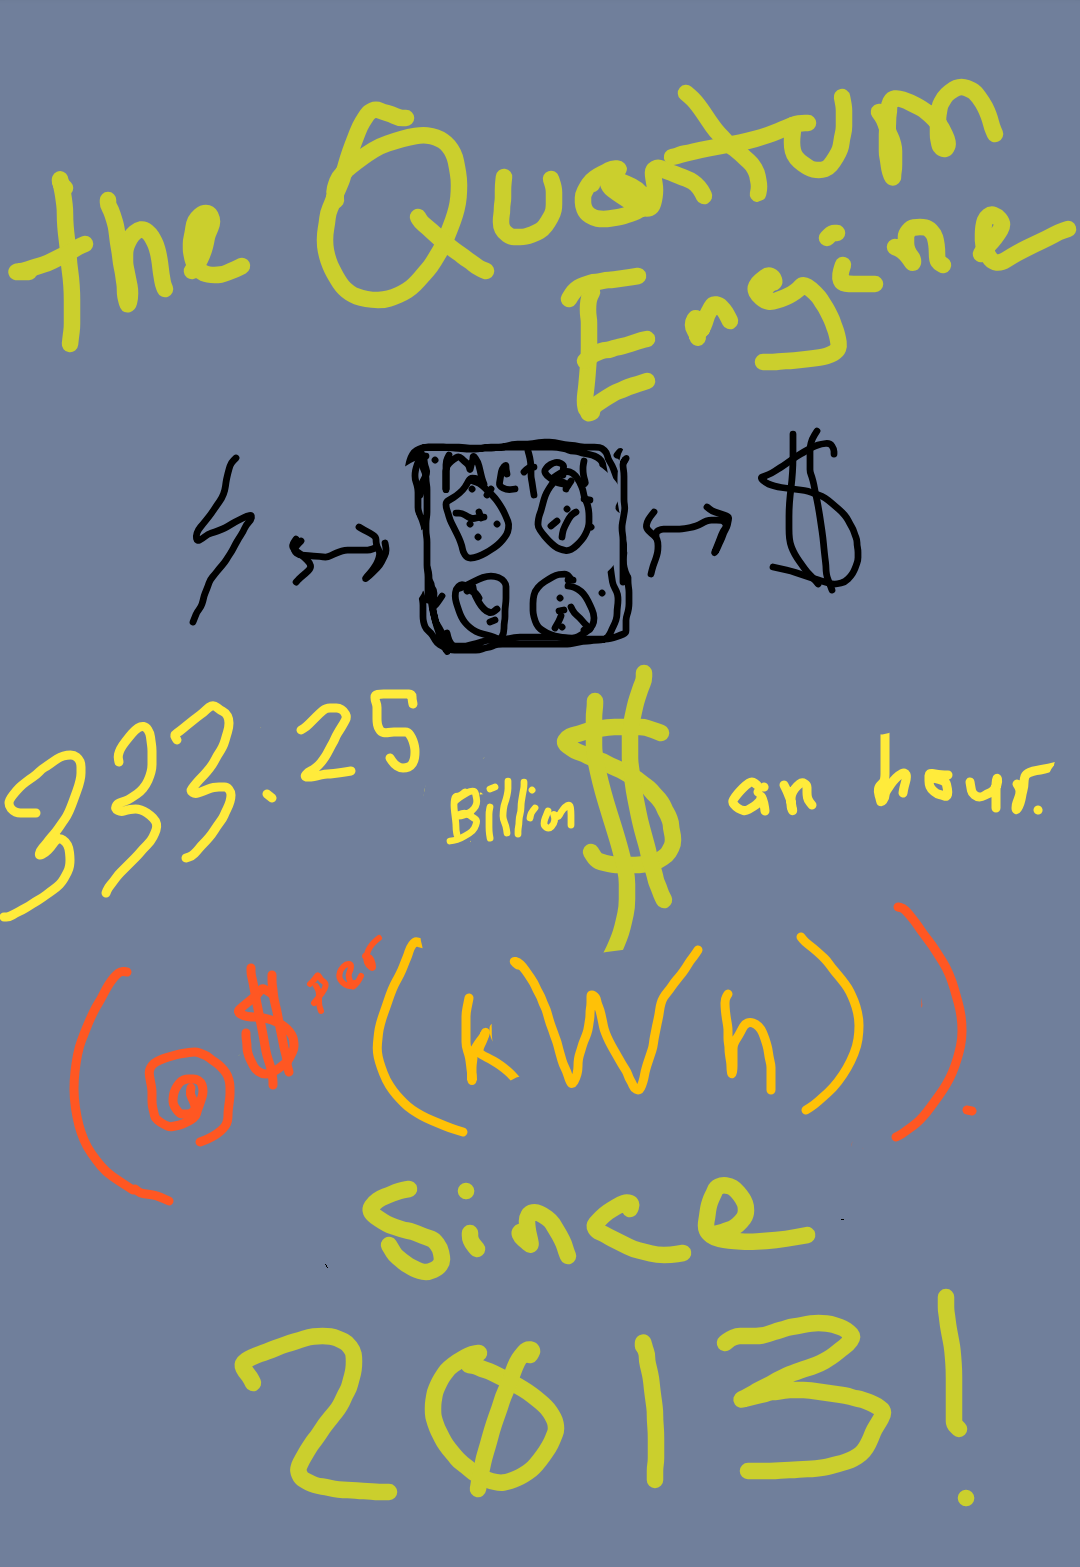 the Quantum
Engine
Metal
$
333.25 Billion $ an hour.
(@ $ per (kWh)).
since
2013!